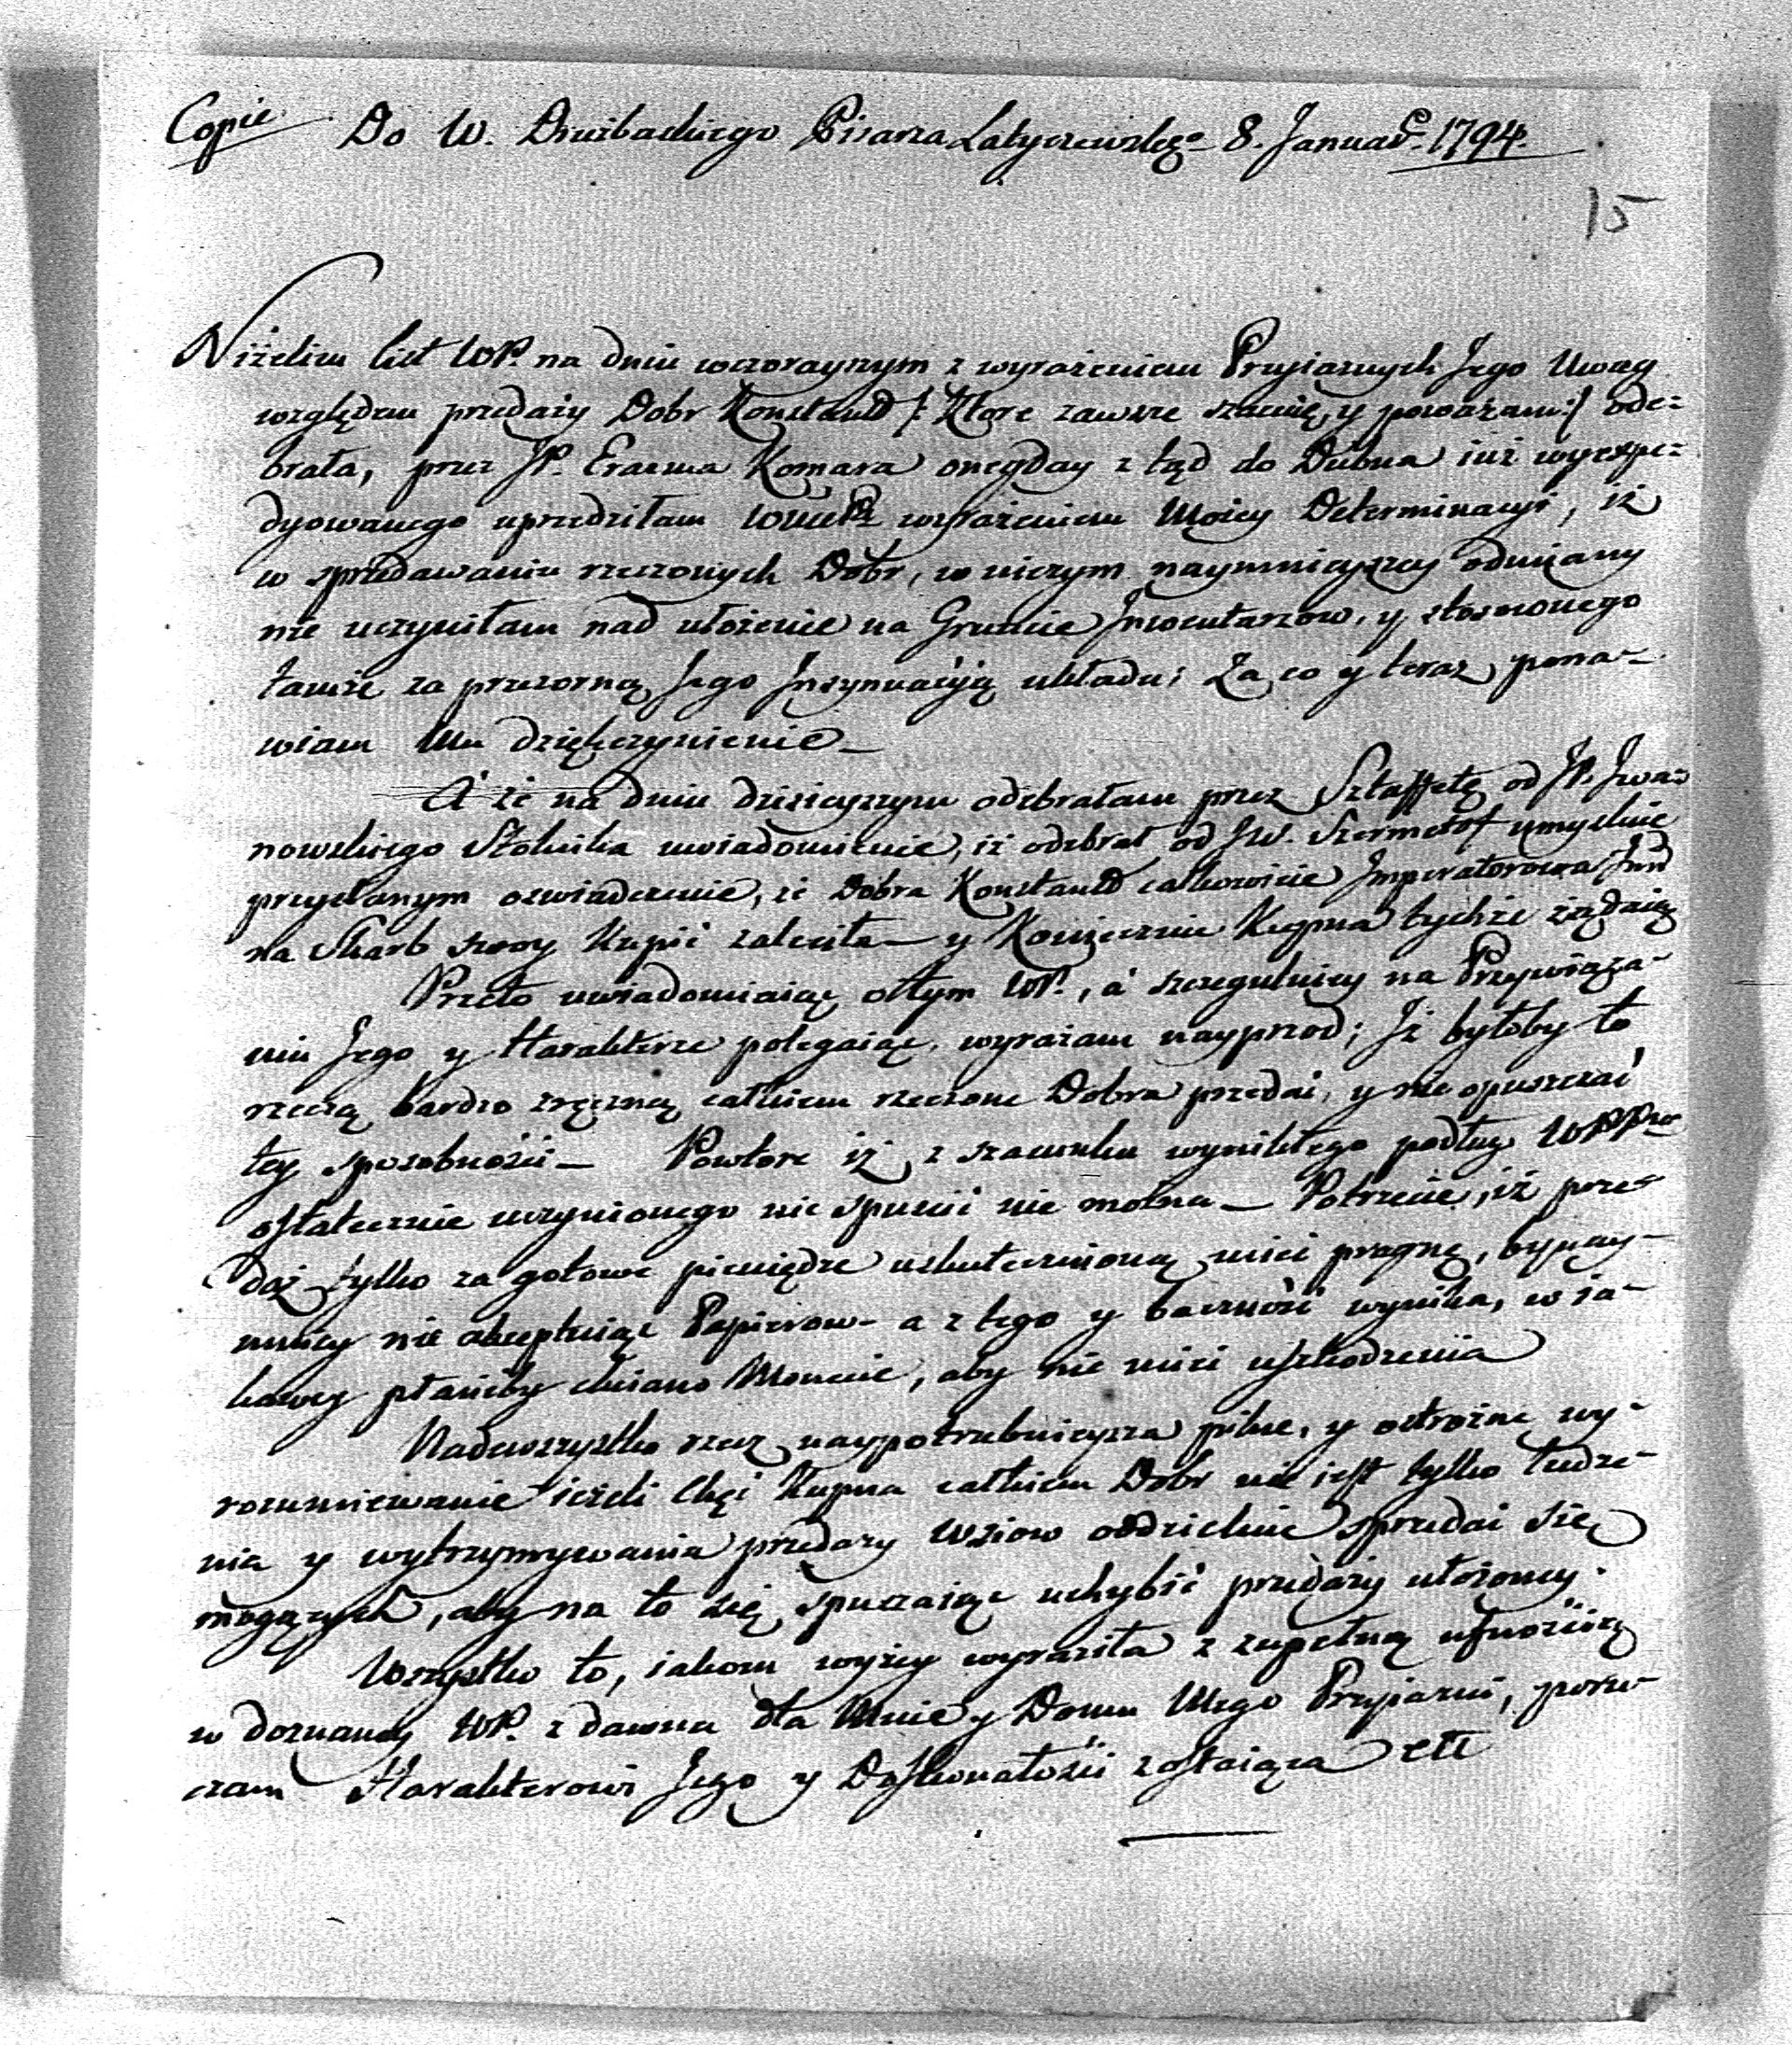 Copie Do W. Drużbackiego Pisarza Latyczewskgo 8. Januar. 1794.
15
Niżelim list WP. na dniu wczorayszym z wyrażeniem Przyiaznych Jego Uwag
względem przedaży Dobr Konstantd /: Ktore zawsze szacuię, y poważam :/ ode-
brała, przez JP. Erazma Komara onegday z tąd do Dubna iuż wyexpe-
dyowanego uprzedziłam wyrażeniem Moiey Determinacyi, iż
w sprzedawaniu rzeczonych Dobr, w niczym naymnieyszey odmiany
nie uczyniłam nad ułożenie na Gruncie Jnwentarzow, y stosownego
tamże za przezorną Jego Jnsynuacyą układu; Za co y teraz pona-
wiam Mu dziękczynienie —
A że na dniu dzisieyszym odebrałam przez Sztaffetę od JP. Jwa-
nowskiego Stolnika uwiadomienie, iż odebrał od JW. Szermetof umyslnie
przysłanym oswiadczenie, że Dobra Konstantd całkowicie Jmperatorowa Jmć
na Skarb swoy Kupić zaleciła — y Koniecznie Kupna tychże żądaią
Przeto uwiadomiaiąc o tym WP., á szczegulniey na Przywiąza-
niu Jego y Harakterze polegaiąc, wyrażam nayprzod; Jż byłoby to
rzeczą bardzo zręczną całkiem rzeczone Dobra przedać, y nie opuszczać
tey sposobności — Powtore iż z szacunku wynikłego podług
ostatecznie uczynionego nic spuścić nie można — Potrzecie, iż prze-
daż tylko za gotowe pieniądze uskutecznioną mieć pragnę, bynay-
mniey nie akceptuiąc Papierow — a z tego y baczność wynika, w ia-
kowey płacićby chciano Monecie, aby nie mieć uszkodzenia
Nadewszystko rzecz naypotrzebnieysza pilne, y ostrożne wy-
rozumiewanie ieżeli Chęć Kupna całkiem Dobr nie iest tylko łudze-
nia y wytrzymywania przedaży Wsiow oddzielnie sprzedać się
mogących, aby na to się spuszczaiąc uchybić przedaży ułożoney.
Wszystko to, iakom wyżey wyraziła z zupełną ufnością
w doznaney WP. z dawna dla Mnie y Domu Mego Przyiazni, poru-
czam Harakterowi Jego y Doskonałości zostaiąca ett